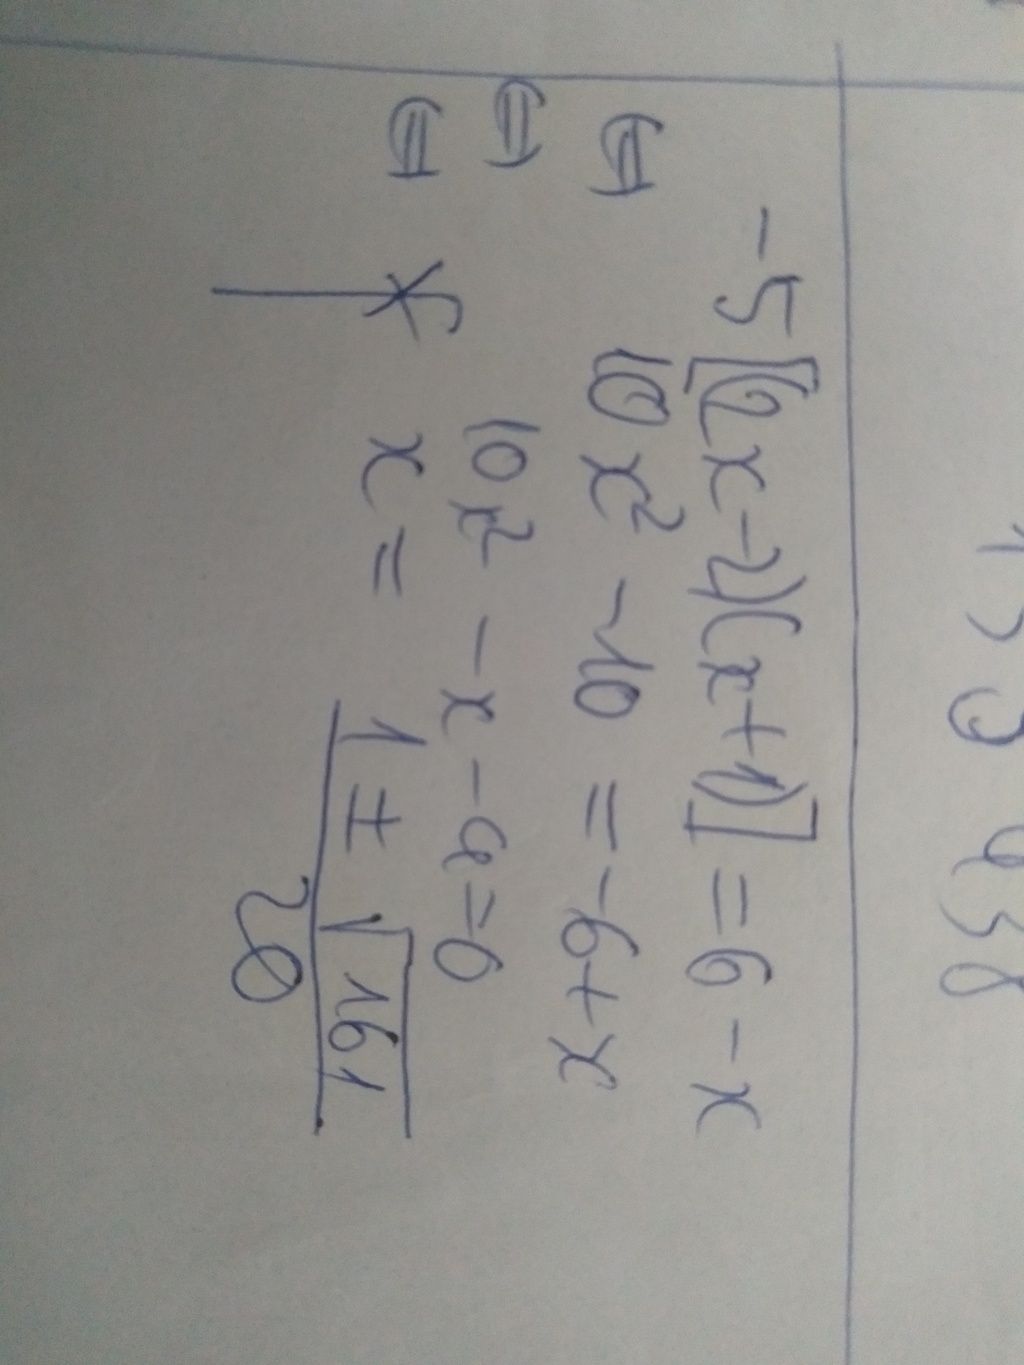 −5[(2x−2)(x+1)] = 6 − x
⇔ 10x² − 10 = −6 + x
⇔ 10x² − x − 4 = 0
⇔ x = 1 ± √161
20